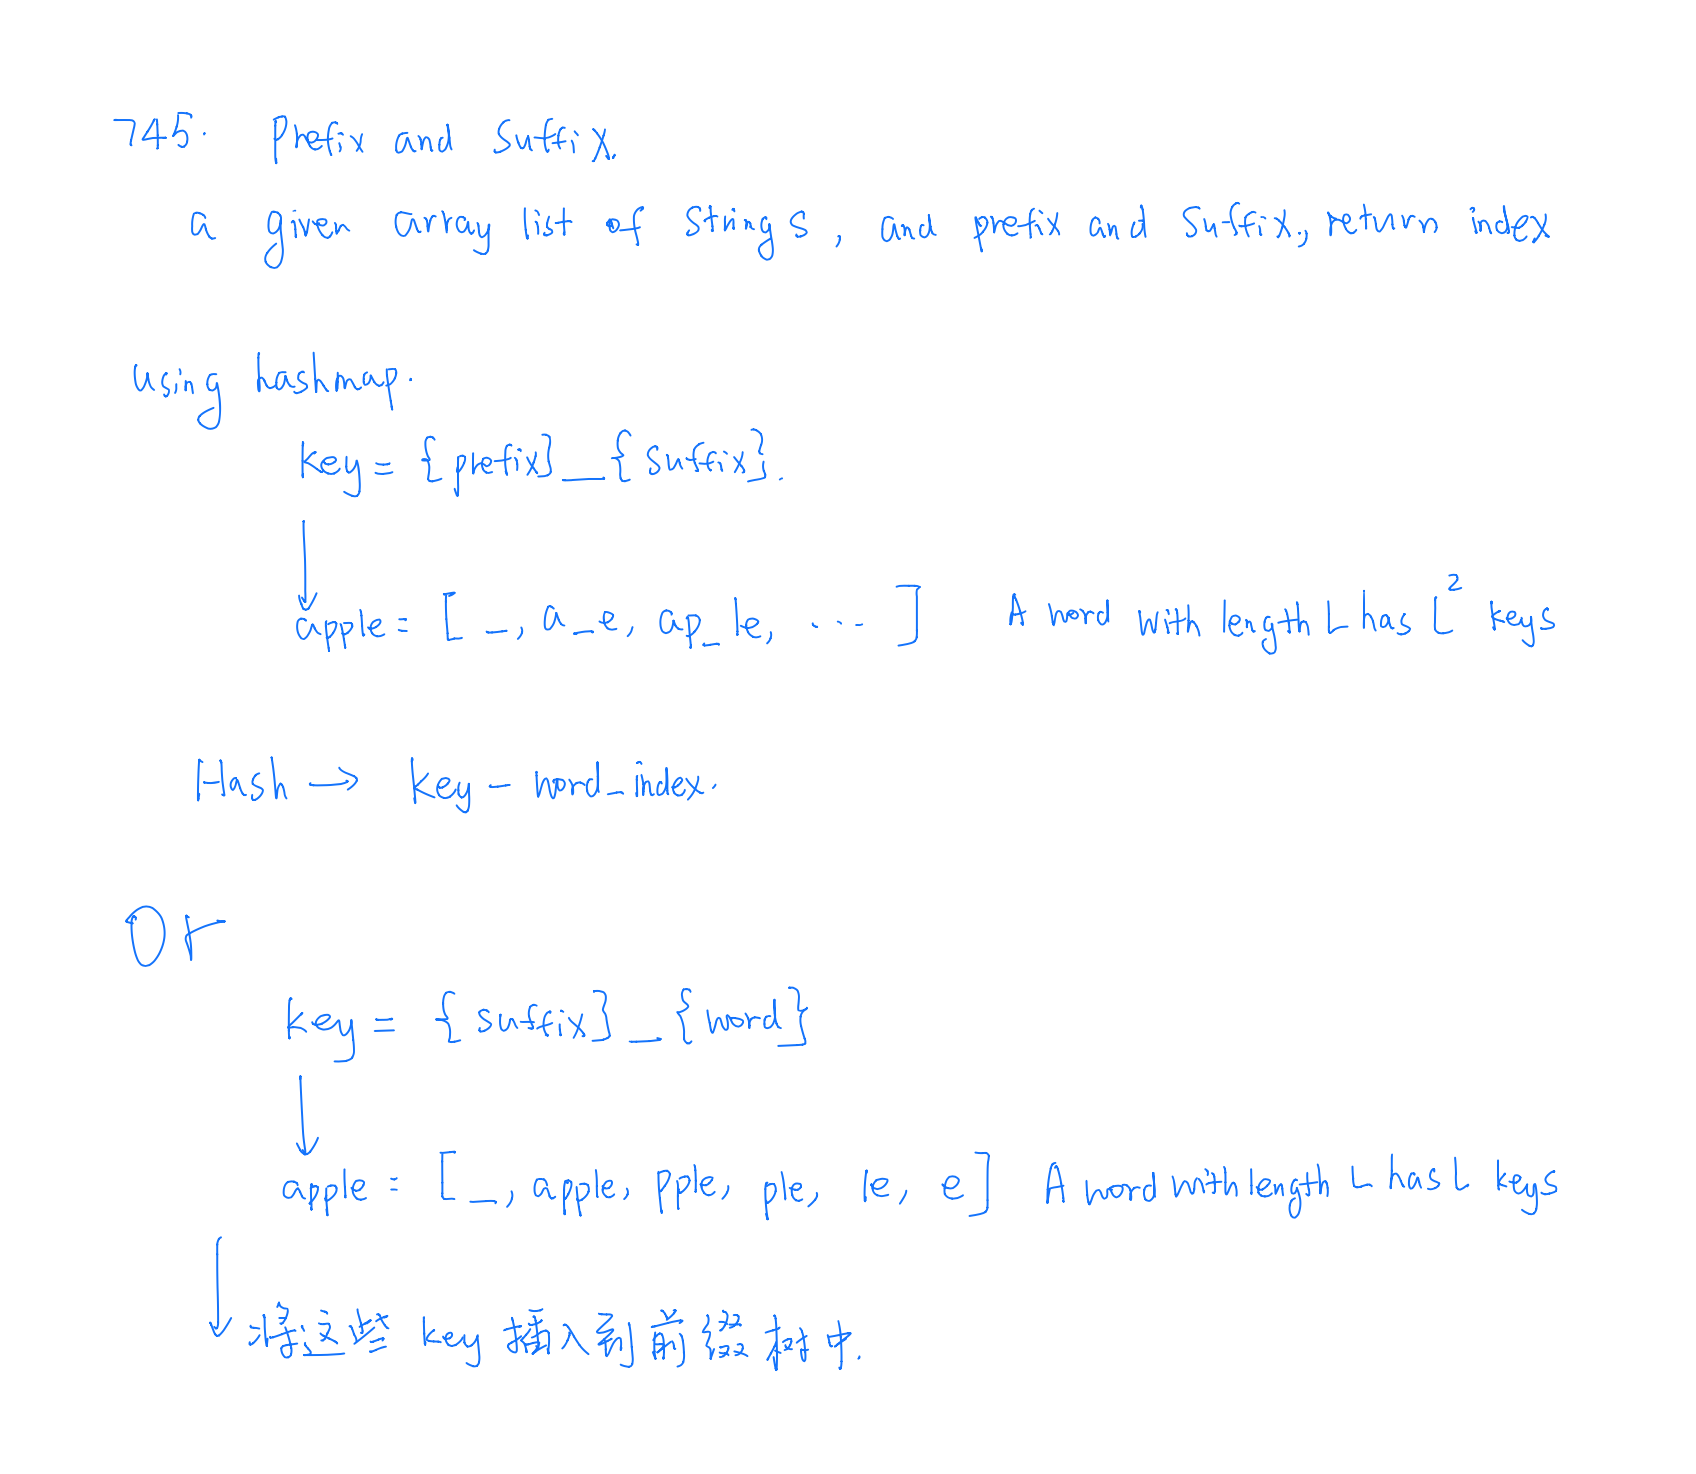 745. Prefix and Suffix.
a given array list of strings, and prefix and suffix, return index
using hashmap.
key = {prefix}_{suffix}.
apple = [ _, a_e, ap_le, ... ] A word with length L has L² keys
Hash → key - word_index.
Or
key = {suffix}_{word}
apple = [ _, apple, pple, ple, le, e] A word with length L has L keys
将这些 key 插入到前缀树中.